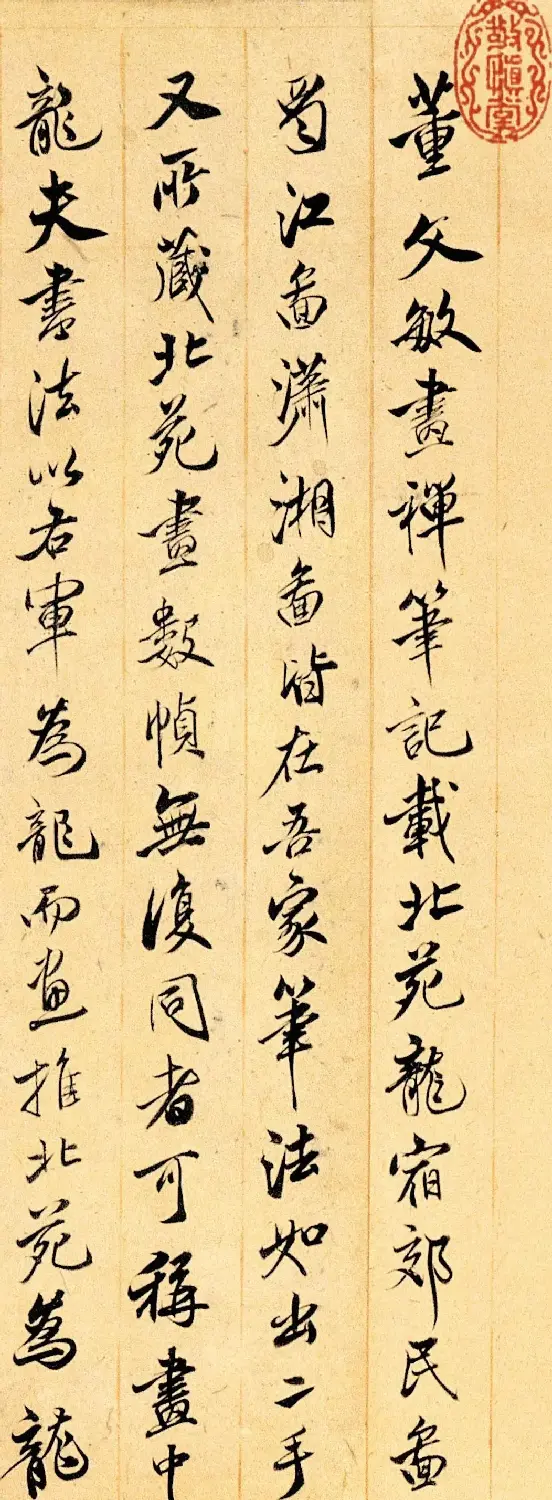 敬慎堂
董文敏畫禪筆記載北苑龍宿郊民圖
蜀江圖瀟湘圖皆在吾家筆法如出二手
又所藏北苑畫數幀無復同者可稱畫中
龍夫書法以右軍為龍而畫推北苑為龍